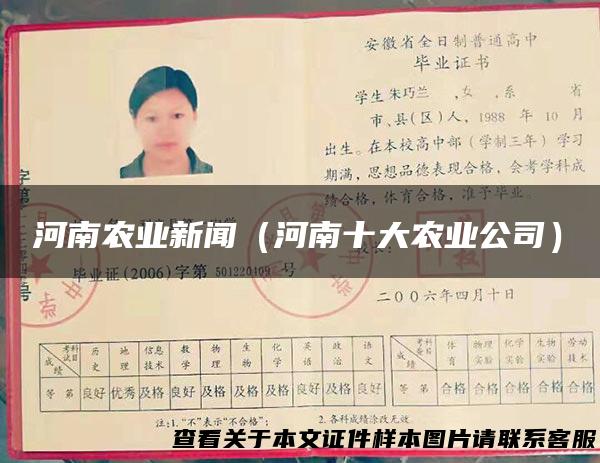 安徽省全日制普通高中
毕业证书
学生朱巧兰 ,女 ,系 省
市、县(区)人, 1988 年 10 月
出生。在本校高中部（学制三年）学习
期满，思想品德表现合格，会考学科成
绩合格，体育合格，准予毕业。
河南农业新闻（河南十大农业公司）
毕业证(2006)字第 501220109 号
二〇〇六年四月十日
成绩 考试科目 历史 地理 信息技术 数学 物理 生物 化学 英语 政治 语文
等第 良好 优秀 及格 良好 及格 及格 及格 良好 及格 良好
成绩 考查科目 体育 物理实验 化学实验 生物实验 劳动技术
等第 合格 合格 合格 合格 合格
注:1."不"表示"不合格"； 2.各科成绩涂改无效。
查看关于本文证件样本图片请联系客服